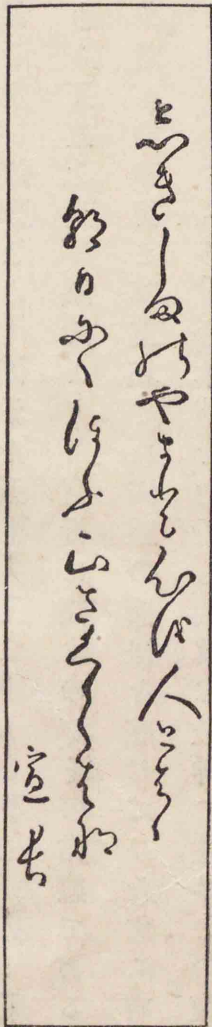 志きしまのやまとこゝろを人とはゝ
朝日ににほふ山さくらはな
宣長